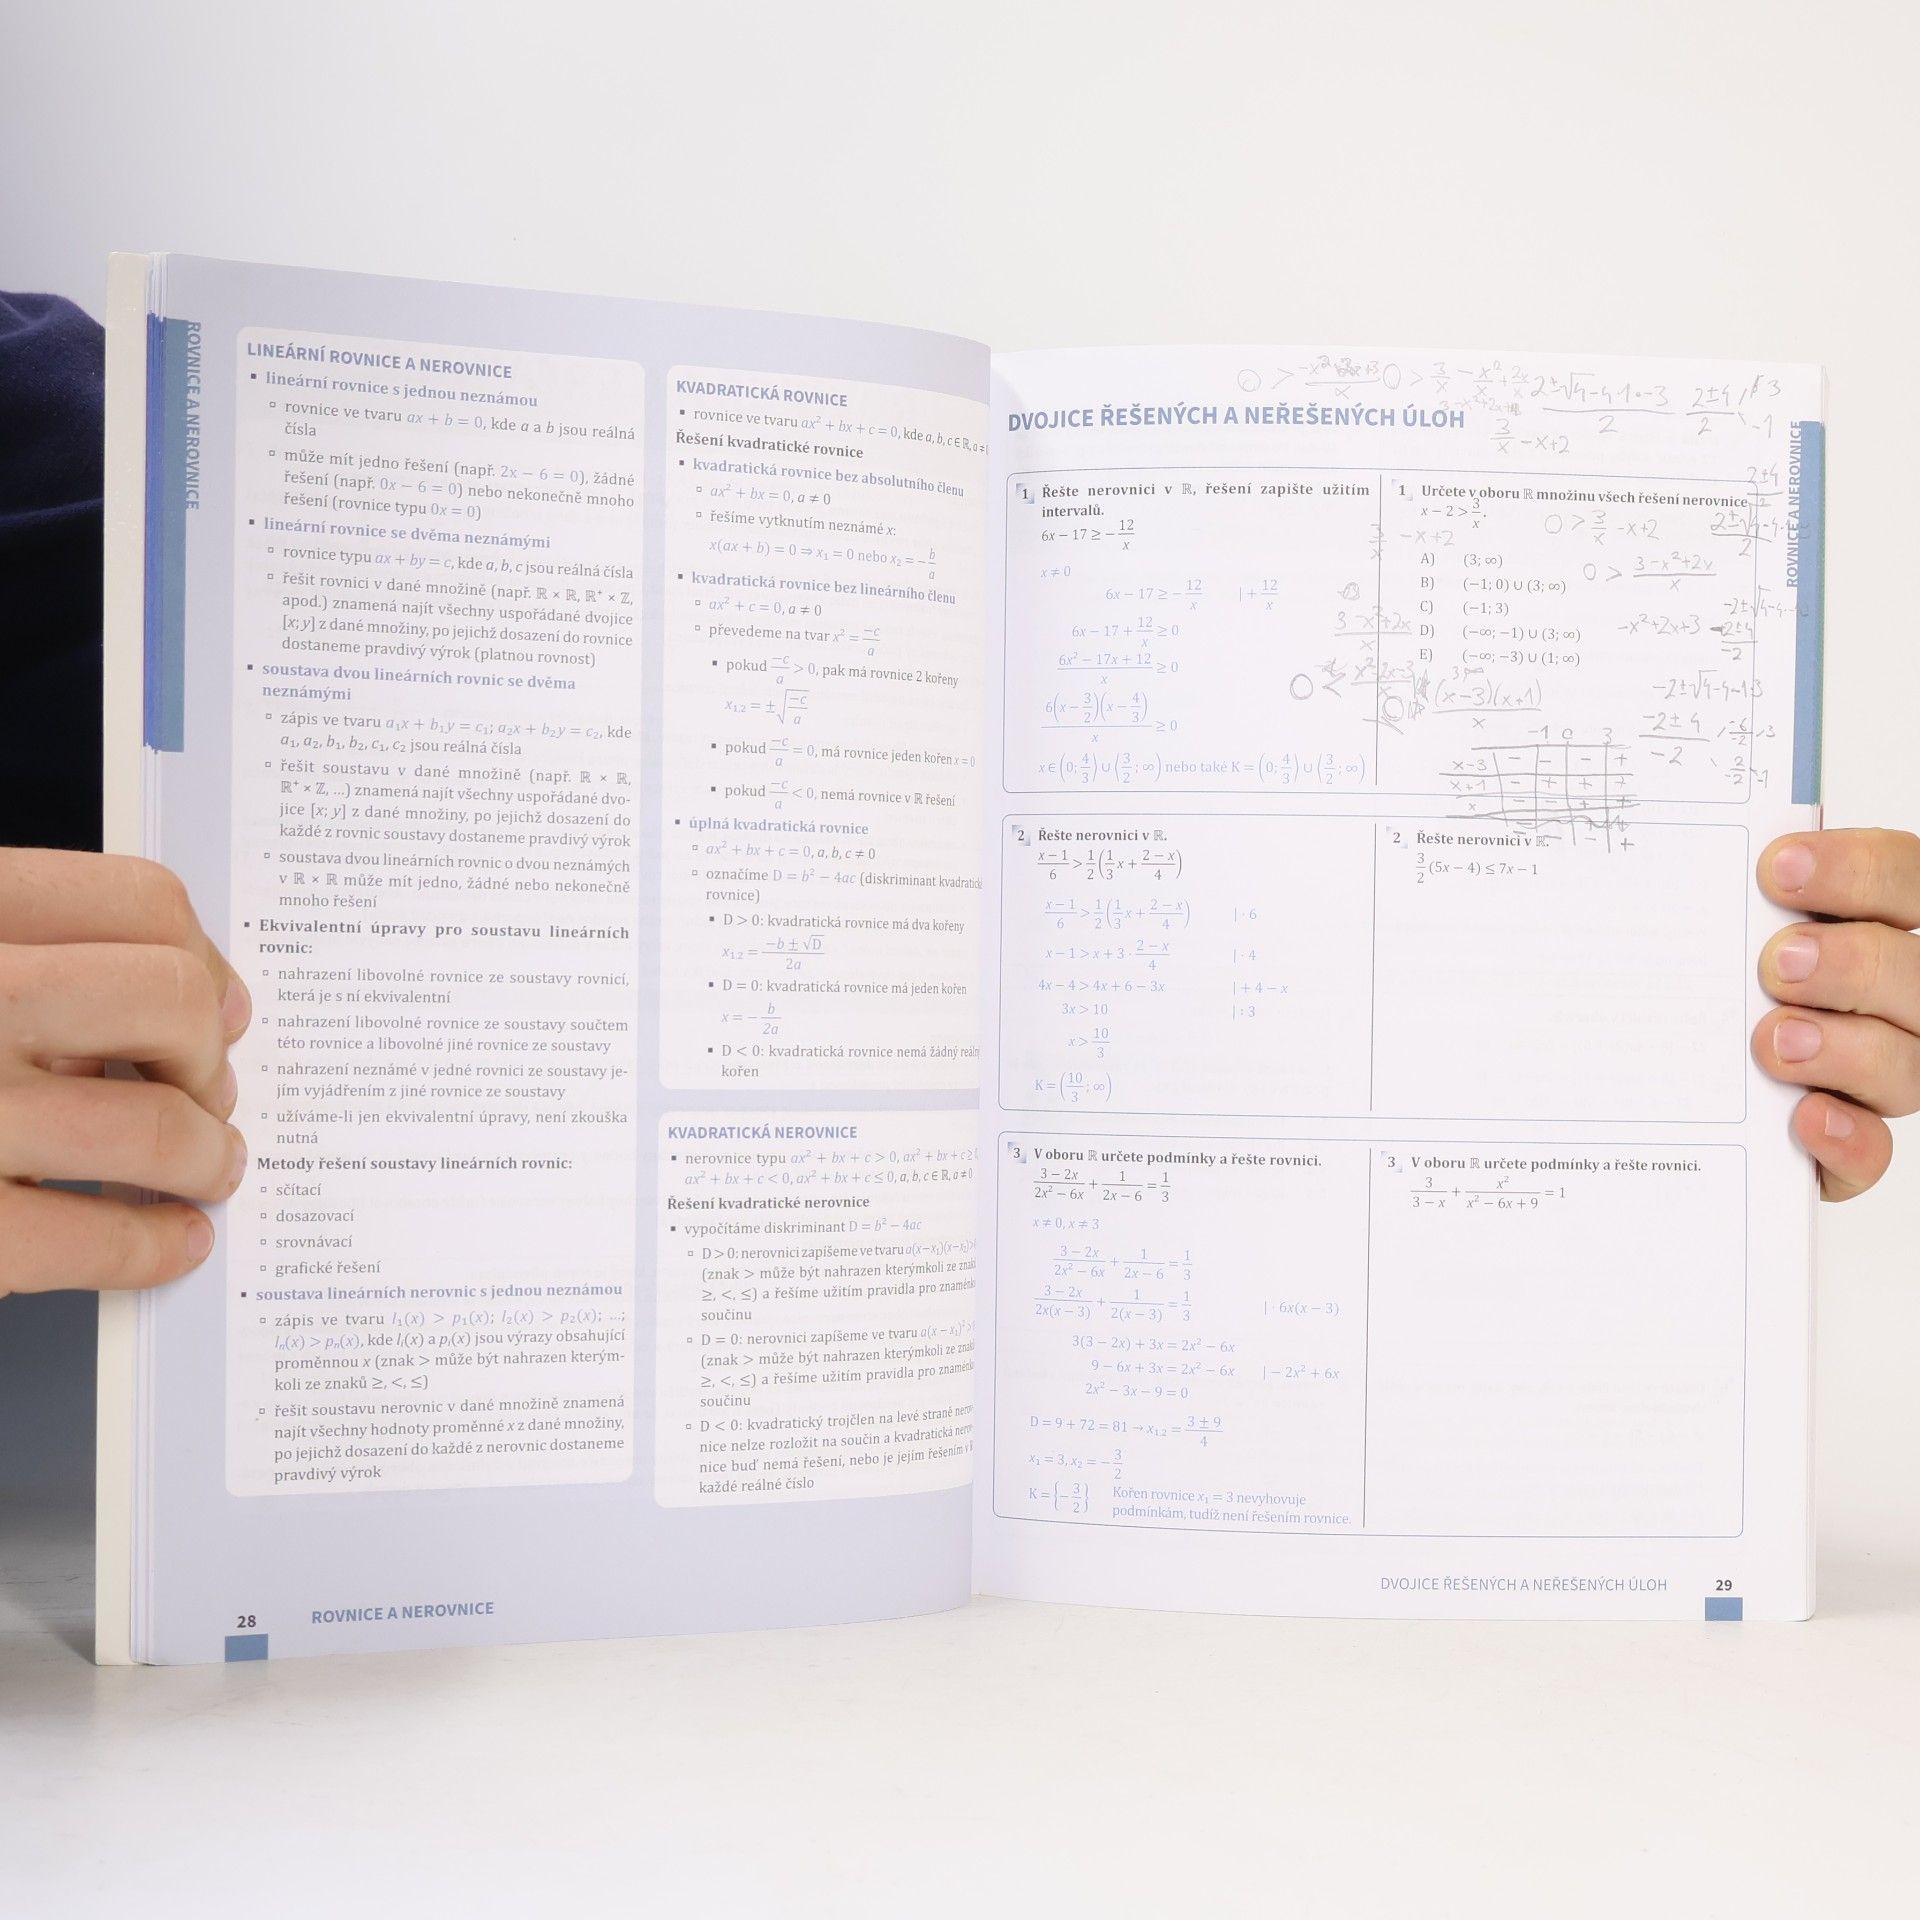 ROVNICE A NEROVNICE
LINEÁRNÍ ROVNICE A NEROVNICE
▪ lineární rovnice s jednou neznámou
▫ rovnice ve tvaru ax + b = 0, kde a a b jsou reálná
čísla
▫ může mít jedno řešení (např. 2x − 6 = 0), žádné
řešení (např. 0x − 6 = 0) nebo nekonečně mnoho
řešení (rovnice typu 0x = 0)
▪ lineární rovnice se dvěma neznámými
▫ rovnice typu ax + by = c, kde a, b, c jsou reálná čísla
▫ řešit rovnici v dané množině (např. ℝ × ℝ, ℝ⁺ × ℤ,
apod.) znamená najít všechny uspořádané dvojice
[x; y] z dané množiny, po jejichž dosazení do rovnice
dostaneme pravdivý výrok (platnou rovnost)
▪ soustava dvou lineárních rovnic se dvěma
neznámými
▫ zápis ve tvaru a₁x + b₁y = c₁; a₂x + b₂y = c₂, kde
a₁, a₂, b₁, b₂, c₁, c₂ jsou reálná čísla
▫ řešit soustavu v dané množině (např. ℝ × ℝ,
ℝ⁺ × ℤ, ...) znamená najít všechny uspořádané dvo-
jice [x; y] z dané množiny, po jejichž dosazení do
každé z rovnic soustavy dostaneme pravdivý výrok
▫ soustava dvou lineárních rovnic o dvou neznámých
v ℝ × ℝ může mít jedno, žádné nebo nekonečně
mnoho řešení
▪ Ekvivalentní úpravy pro soustavu lineárních
rovnic:
▫ nahrazení libovolné rovnice ze soustavy rovnicí,
která je s ní ekvivalentní
▫ nahrazení libovolné rovnice ze soustavy součtem
této rovnice a libovolné jiné rovnice ze soustavy
▫ nahrazení neznámé v jedné rovnici ze soustavy je-
jím vyjádřením z jiné rovnice ze soustavy
▫ užíváme-li jen ekvivalentní úpravy, není zkouška
nutná
Metody řešení soustavy lineárních rovnic:
▫ sčítací
▫ dosazovací
▫ srovnávací
▫ grafické řešení
▪ soustava lineárních nerovnic s jednou neznámou
▫ zápis ve tvaru l₁(x) > p₁(x); l₂(x) > p₂(x); ...;
lₙ(x) > pₙ(x), kde lᵢ(x) a pᵢ(x) jsou výrazy obsahující
proměnnou x (znak > může být nahrazen kterým-
koli ze znaků ≥, <, ≤)
▫ řešit soustavu nerovnic v dané množině znamená
najít všechny hodnoty proměnné x z dané množiny,
po jejichž dosazení do každé z nerovnic dostaneme
pravdivý výrok
KVADRATICKÁ ROVNICE
▪ rovnice ve tvaru ax² + bx + c = 0, kde a, b, c ∈ ℝ, a ≠
Řešení kvadratické rovnice
▪ kvadratická rovnice bez absolutního členu
▫ ax² + bx = 0, a ≠ 0
▫ řešíme vytknutím neznámé x:
x(ax + b) = 0 ⇒ x₁ = 0 nebo x₂ = −b/a
▪ kvadratická rovnice bez lineárního členu
▫ ax² + c = 0, a ≠ 0
▫ převedeme na tvar x² = −c/a
▪ pokud −c/a > 0, pak má rovnice 2 kořeny
x₁,₂ = ±√(−c/a)
▪ pokud −c/a = 0, má rovnice jeden kořen x = 0
▪ pokud −c/a < 0, nemá rovnice v ℝ řešení
▪ úplná kvadratická rovnice
▫ ax² + bx + c = 0, a, b, c ≠ 0
▫ označíme D = b² − 4ac (diskriminant kvadratické
rovnice)
▪ D > 0: kvadratická rovnice má dva kořeny
x₁,₂ = (−b ± √D)/2a
▪ D = 0: kvadratická rovnice má jeden kořen
x = −b/2a
▪ D < 0: kvadratická rovnice nemá žádný reáln
kořen
KVADRATICKÁ NEROVNICE
▪ nerovnice typu ax² + bx + c > 0, ax² + bx + c ≥ 0,
ax² + bx + c < 0, ax² + bx + c ≤ 0, a, b, c ∈ ℝ, a ≠ 0
Řešení kvadratické nerovnice
▪ vypočítáme diskriminant D = b² − 4ac
▫ D > 0: nerovnici zapíšeme ve tvaru a(x − x₁)(x − x₂) >
(znak > může být nahrazen kterýmkoli ze znaků
≥, <, ≤) a řešíme užitím pravidla pro znaménko
součinu
▫ D = 0: nerovnici zapíšeme ve tvaru a(x − x₁)² >
(znak > může být nahrazen kterýmkoli ze znaků
≥, <, ≤) a řešíme užitím pravidla pro znaménko
součinu
▫ D < 0: kvadratický trojčlen na levé straně nerov-
nice nelze rozložit na součin a kvadratická nerov-
nice buď nemá řešení, nebo je jejím řešením v ℝ
každé reálné číslo
28
ROVNICE A NEROVNICE
0 > 3/x − x²/x + 2x/x
2±√4−4·1·−3 / 2
2±4 / 2
3
-1
3/x − x + 2
DVOJICE ŘEŠENÝCH A NEŘEŠENÝCH ÚLOH
ROVNICE A NEROVNICE
1 Řešte nerovnici v ℝ, řešení zapište užitím
intervalů.
6x − 17 ≥ −12/x
x ≠ 0
6x − 17 ≥ −12/x | + 12/x
6x − 17 + 12/x ≥ 0
(6x² − 17x + 12)/x ≥ 0
6(x − 3/2)(x − 4/3)/x ≥ 0
x ∈ (0; 4/3) ∪ (3/2; ∞) nebo také K = (0; 4/3) ∪ (3/2; ∞)
1 Určete v oboru ℝ množinu všech řešení nerovnice
x − 2 > 3/x.
A) (3; ∞)
B) (−1; 0) ∪ (3; ∞)
C) (−1; 3)
D) (−∞; −1) ∪ (3; ∞)
E) (−∞; −3) ∪ (1; ∞)
0 > 3/x − x + 2
3/x − x + 2
0 > (3 − x² + 2x)/x
3 − x² + 2x / x
−x² + 2x + 3
(x−3)(x+1) / x
−2±√4−4−1·3
−2±4 / −2
-6/-2 3
2/-2 -1
-1 0 3
x−3 − − − +
x+1 − + + +
x − − + +
2 Řešte nerovnici v ℝ.
(x − 1)/6 > 1/2(1/3x + (2 − x)/4)
(x − 1)/6 > 1/2(1/3x + (2 − x)/4) | · 6
x − 1 > x + 3 · (2 − x)/4 | · 4
4x − 4 > 4x + 6 − 3x | + 4 − x
3x > 10 | : 3
x > 10/3
K = (10/3; ∞)
2 Řešte nerovnici v ℝ.
3/2(5x − 4) ≤ 7x − 1
3 V oboru ℝ určete podmínky a řešte rovnici.
(3 − 2x)/(2x² − 6x) + 1/(2x − 6) = 1/3
x ≠ 0, x ≠ 3
(3 − 2x)/(2x² − 6x) + 1/(2x − 6) = 1/3
(3 − 2x)/(2x(x − 3)) + 1/(2(x − 3)) = 1/3 | · 6x(x − 3)
3(3 − 2x) + 3x = 2x² − 6x
9 − 6x + 3x = 2x² − 6x | − 2x² + 6x
2x² − 3x − 9 = 0
D = 9 + 72 = 81 → x₁,₂ = (3 ± 9)/4
x₁ = 3, x₂ = −3/2
K = {−3/2} Kořen rovnice x₁ = 3 nevyhovuje
podmínkám, tudíž není řešením rovnice.
3 V oboru ℝ určete podmínky a řešte rovnici.
3/(3 − x) + x²/(x² − 6x + 9) = 1
DVOJICE ŘEŠENÝCH A NEŘEŠENÝCH ÚLOH
29